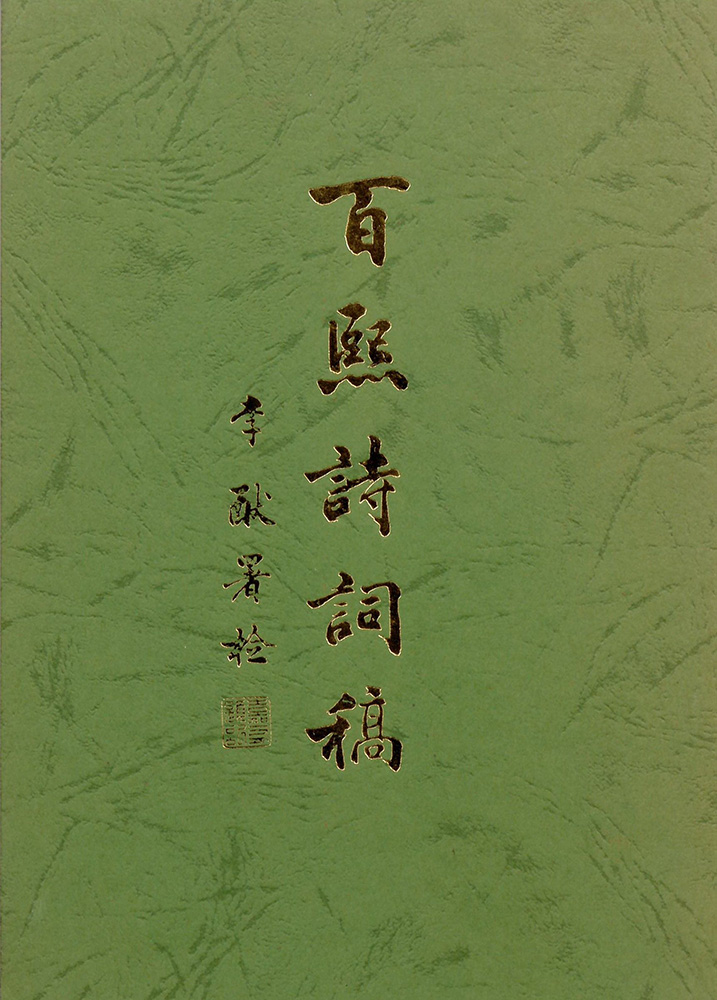 百熙詩詞稿
李猷署檢